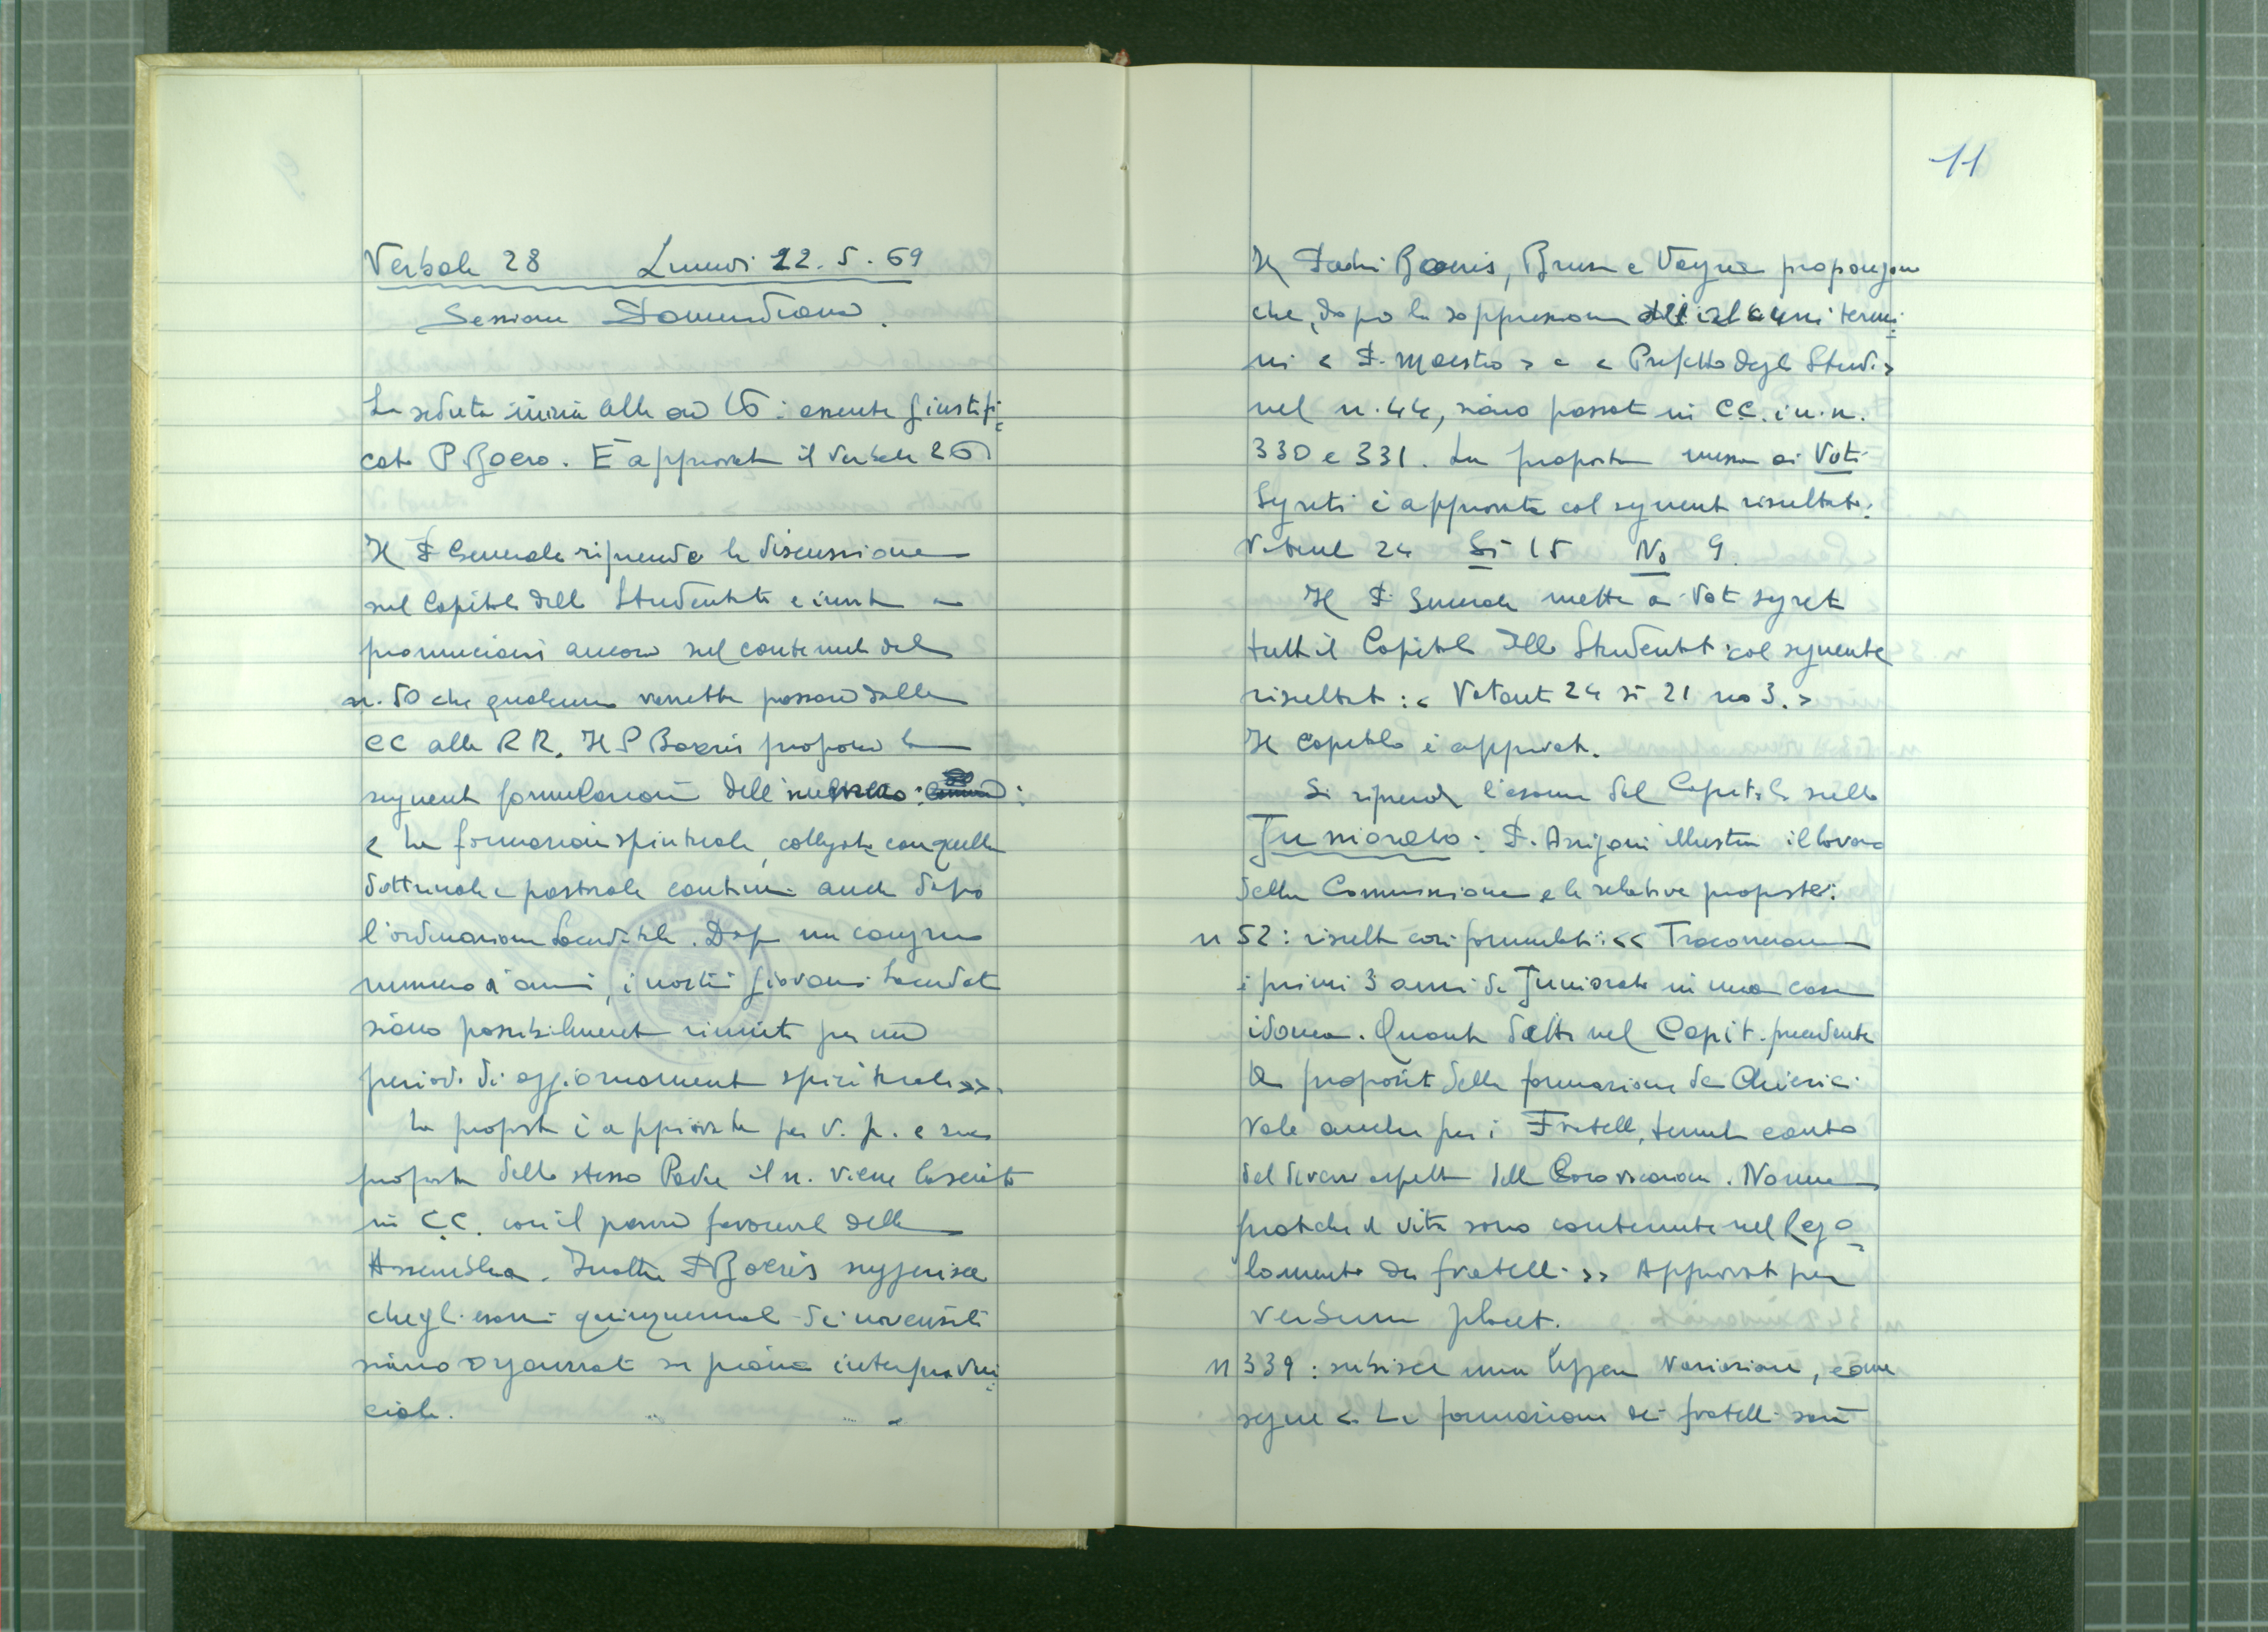 Verbale 28 Lunedì 12. 5. 69
Sessione Pomeridiana.
La seduta inizia alle ore 16: assente giustifi=
cato P. Boero. È approvato il verbale 26
Il P. Generale riprende la discussione
sul Capitolo dello Studentato e invita a
pronunciarsi ancora sul contenuto del
n. 50 che qualcuno vorrebbe passare dalle
CC alle RR. Il P Boeris propone la
seguente formulazione dell'
< La formazione spirituale, collegata con quella
dottrinale e pastorale continui anche dopo
l'ordinazione Sacerdotale. Dopo un congruo
numero di anni, i nostri giovani Sacerdoti
siano possibilmente riuniti per un
periodo di aggiornamento spirituale >>.
La proposta è approvata per v. p. e su
proposta dello stesso Padre il n. viene lasciato
in C.C. con il parere favorevole della
Assemblea. Inoltre P Boeris suggerisce
che gli esami quinquennali dei novensili
siano organizzati su piano interprovin=
ciale.
11
Il Padri Boeris, Brusa e Veyra propongono
che, dopo la soppressione termi=
ni < P. Maestro > e < Prefetto degli Studi >
nel n. 44, siano passati in CC. i n.n.
330 e 331. La proposta messa ai Voti
Segreti è approvata col seguente risultato:
Votanti 24 Sì 15 No 9.
Il P. Generale mette a Voti segreti
tutto il Capitolo dello Studentato col seguente
risultato: < Votanti 24 sì 21 no 3. >
Il Capitolo è approvato.
Si riprende l'esame del Capitolo sullo
Juniorato: P. Arrigoni illustra il lavoro
della Commissione e le relative proposte:
n 52: risulta così formulato: << Trascorreranno
i primi 3 anni di Juniorato in una casa
idonea. Quanto detto nel Capit. precedente
a proposito della formazione dei Chierici
vale anche per i Fratelli, tenuto conto
del diverso aspetto della loro vocazione. Norme
pratiche di vita sono contenute nel Rego=
lamento dei fratelli >> Approvato per
verbum placet.
n 339: subisce una leggera variazione, come
segue <. La formazione dei fratelli sarà